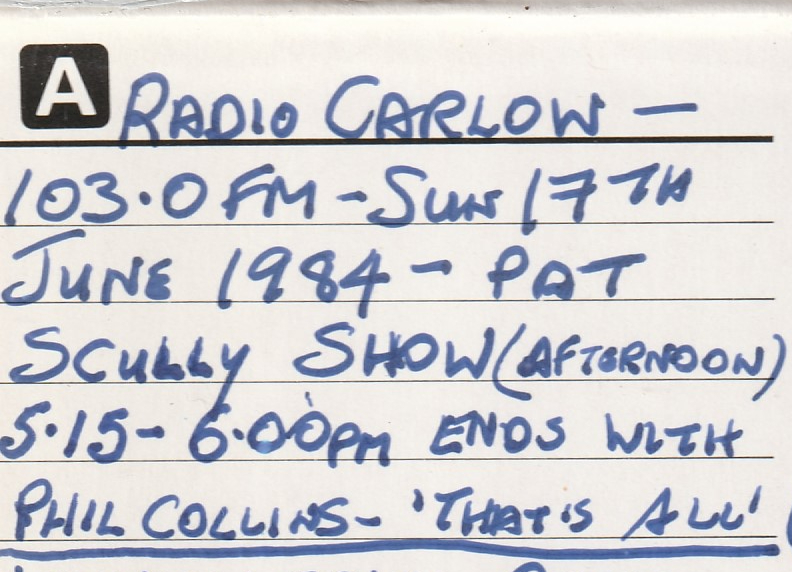 A RADIO CARLOW —
103.0 FM - SUN 17TH
JUNE 1984 - PAT
SCULLY SHOW (AFTERNOON)
5.15 - 6.00PM ENDS WITH
PHIL COLLINS - 'THAT'S ALL' (